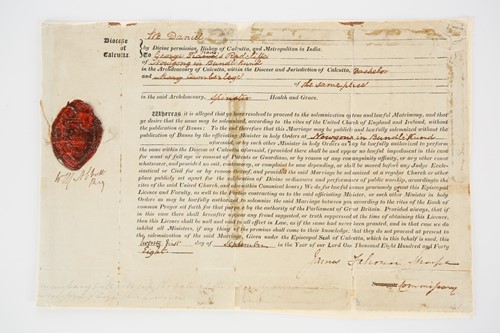 Diocese
of
Calcutta.
We Daniel
by Divine permission, Bishop of Calcutta, and Metropolitan in India.
To George Francis
of in Bundelkund
in the Archdeaconry of Calcutta, within the Diocese and Jurisdiction of Calcutta, Bachelor
and Mary
of the same place
in the said Archdeaconry, Spinster Health and Grace.
WHEREAS it is alleged that ye are resolved to proceed to the solemnization of true and lawful Matrimony, and that
ye desire that the same may be solemnized, according to the rites of the United Church of England and Ireland, without
the publication of Banns: To the end therefore that this Marriage may be publicly and lawfully solemnized without the
publication of Banns by the officiating Minister in holy Orders at Nowgong in Bundelkund
or by such other Minister in holy Orders as may be lawfully authorized to perform
the same within the Diocese of Calcutta aforesaid, (provided there shall be and appear no lawful impediment in this case
for want of full age or consent of Parents or Guardians, or by reason of any consanguinity affinity, or any other cause
whatsoever, and provided no suit, controversy, or complaint be now depending, or shall be moved before any Judge Eccle-
siastical or Civil for or by reason thereof, and provided the said Marriage be celebrated in a regular Church or other
place publicly set apart for the celebration of Divine ordinances and performance of public worship, accordingly the
rites of the said United Church, and within Canonical hours) We do for lawful causes graciously grant this Episcopal
Licence and Faculty, as well to the Parties contracting as to the said officiating Minister, or such other Minister in holy
Orders as may be lawfully authorized to solemnize the said Marriage between you according to the rites of the Book of
Common Prayer set forth for that purpose, by the authority of the Parliament of Great Britain. Provided always, that if
in this case there shall hereafter appear any fraud suggested, or truth suppressed at the time of obtaining this Licence,
then this Licence shall be null and void to all effect in Law, as if the same had never been granted, and in that case we do
inhibit all Ministers, if any thing of the premises shall come to their knowledge, that they do not presume to proceed to
the solemnization of the said Marriage. Given under the Episcopal Seal of Calcutta, which in this behalf is used, this
twenty first day of September in the Year of our Lord One Thousand Eight Hundred and Forty
Eight
James
Commissary
Reg